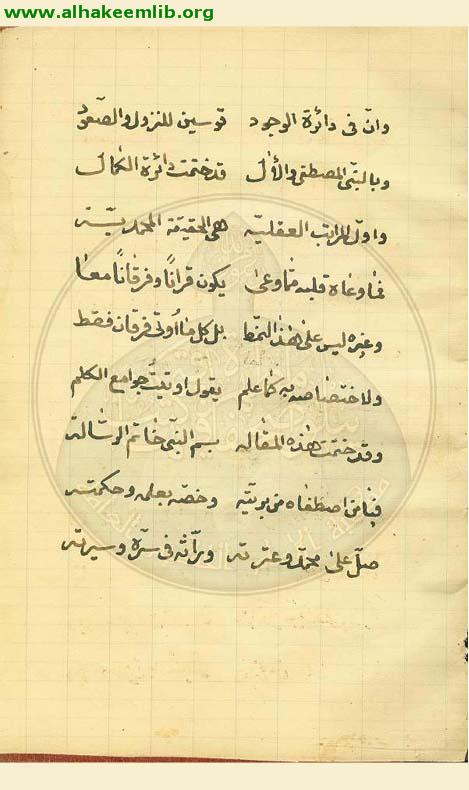 www.alhakeemlib.org
وانّ فى دائرة الوجود قوسين للنزول والصّعود
وبالنبّى المصطفى والأل قد ختمت دائرة الكمال
واول المراتب العقليّه هى الحقيقة المحمديّة
فما وعاه قلبه فما وعى يكون قراناً وفرقاناً معا
وغيره ليس على هذا النمط بل كل ما اُوتى فرقان فقط
ولاختصاصه به كما علم يقول اوتيتُ جوامع الكلم
وقد ختمت هذه المقاله بسم النبّى خاتم الرساله
فيا من اصطفاه من بريّته وخصّه بعلمه وحكمته
صلّ على محمد وعترته ورّاثه فى سرّه وسيرته